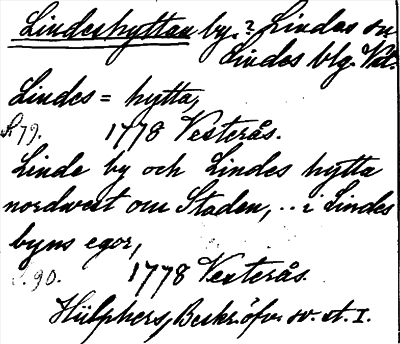 Lindeshyttan by. ? Lindes sn
Lindes blg. Vstm.
Lindes = hytta,
S. 79. 1778 Vesterås.
Linde by och Lindes hytta
nordwest om Staden, .. i Lindes
byns egor,
S. 90. 1778 Vesterås.
Hülphers, Beskr. öfv. sv. st. I.